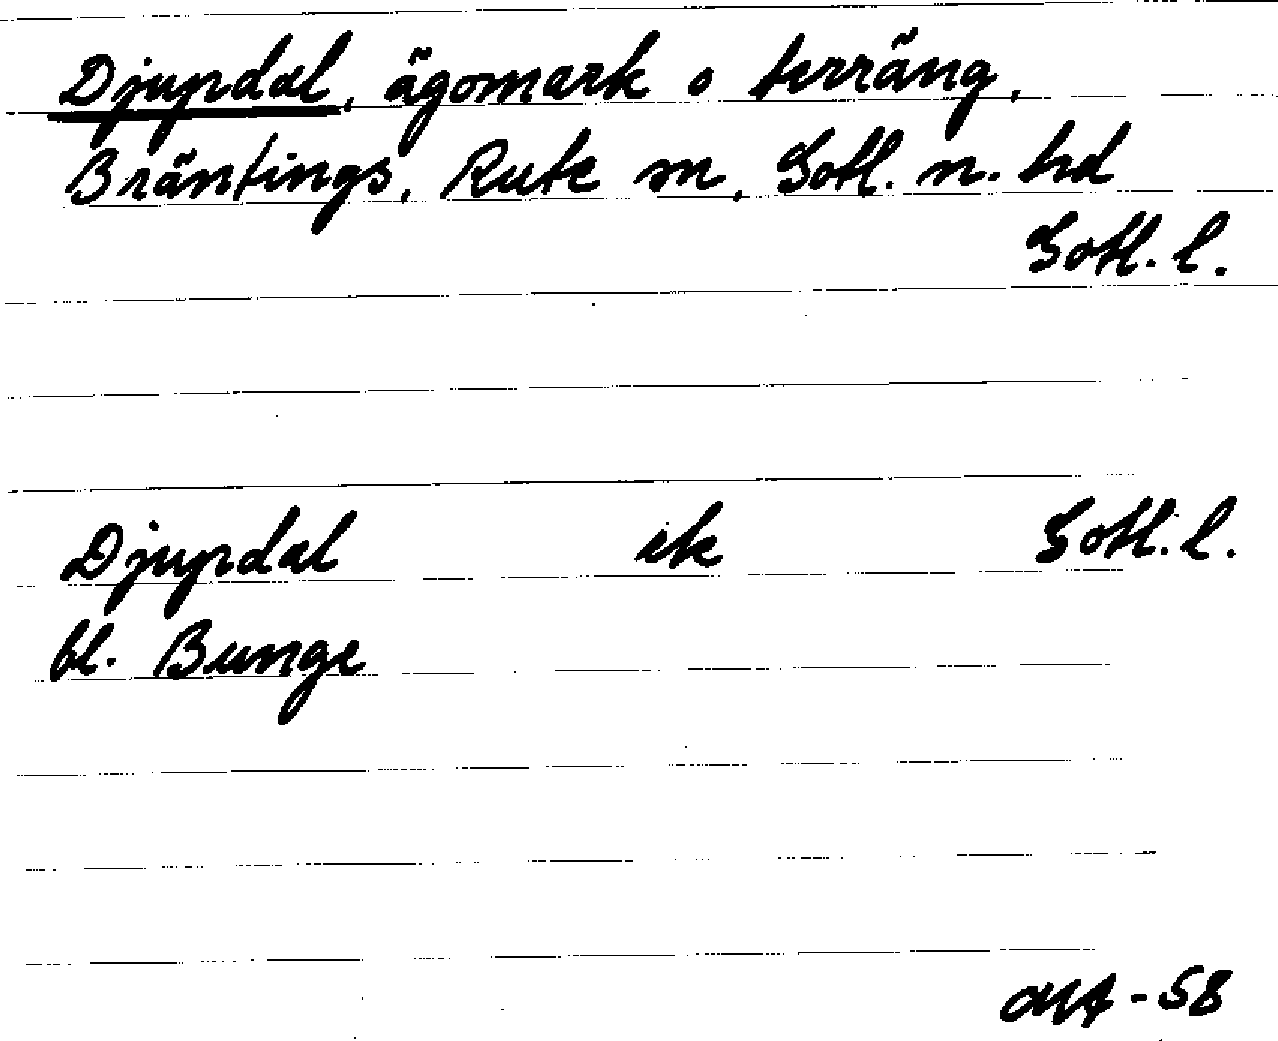 Djupdal, ägomark o terräng,
Bräntings, Rute sn, Gotl. n. hd
Gotl. l.
Djupdal ek Gotl. l.
bl. Bunge
-58